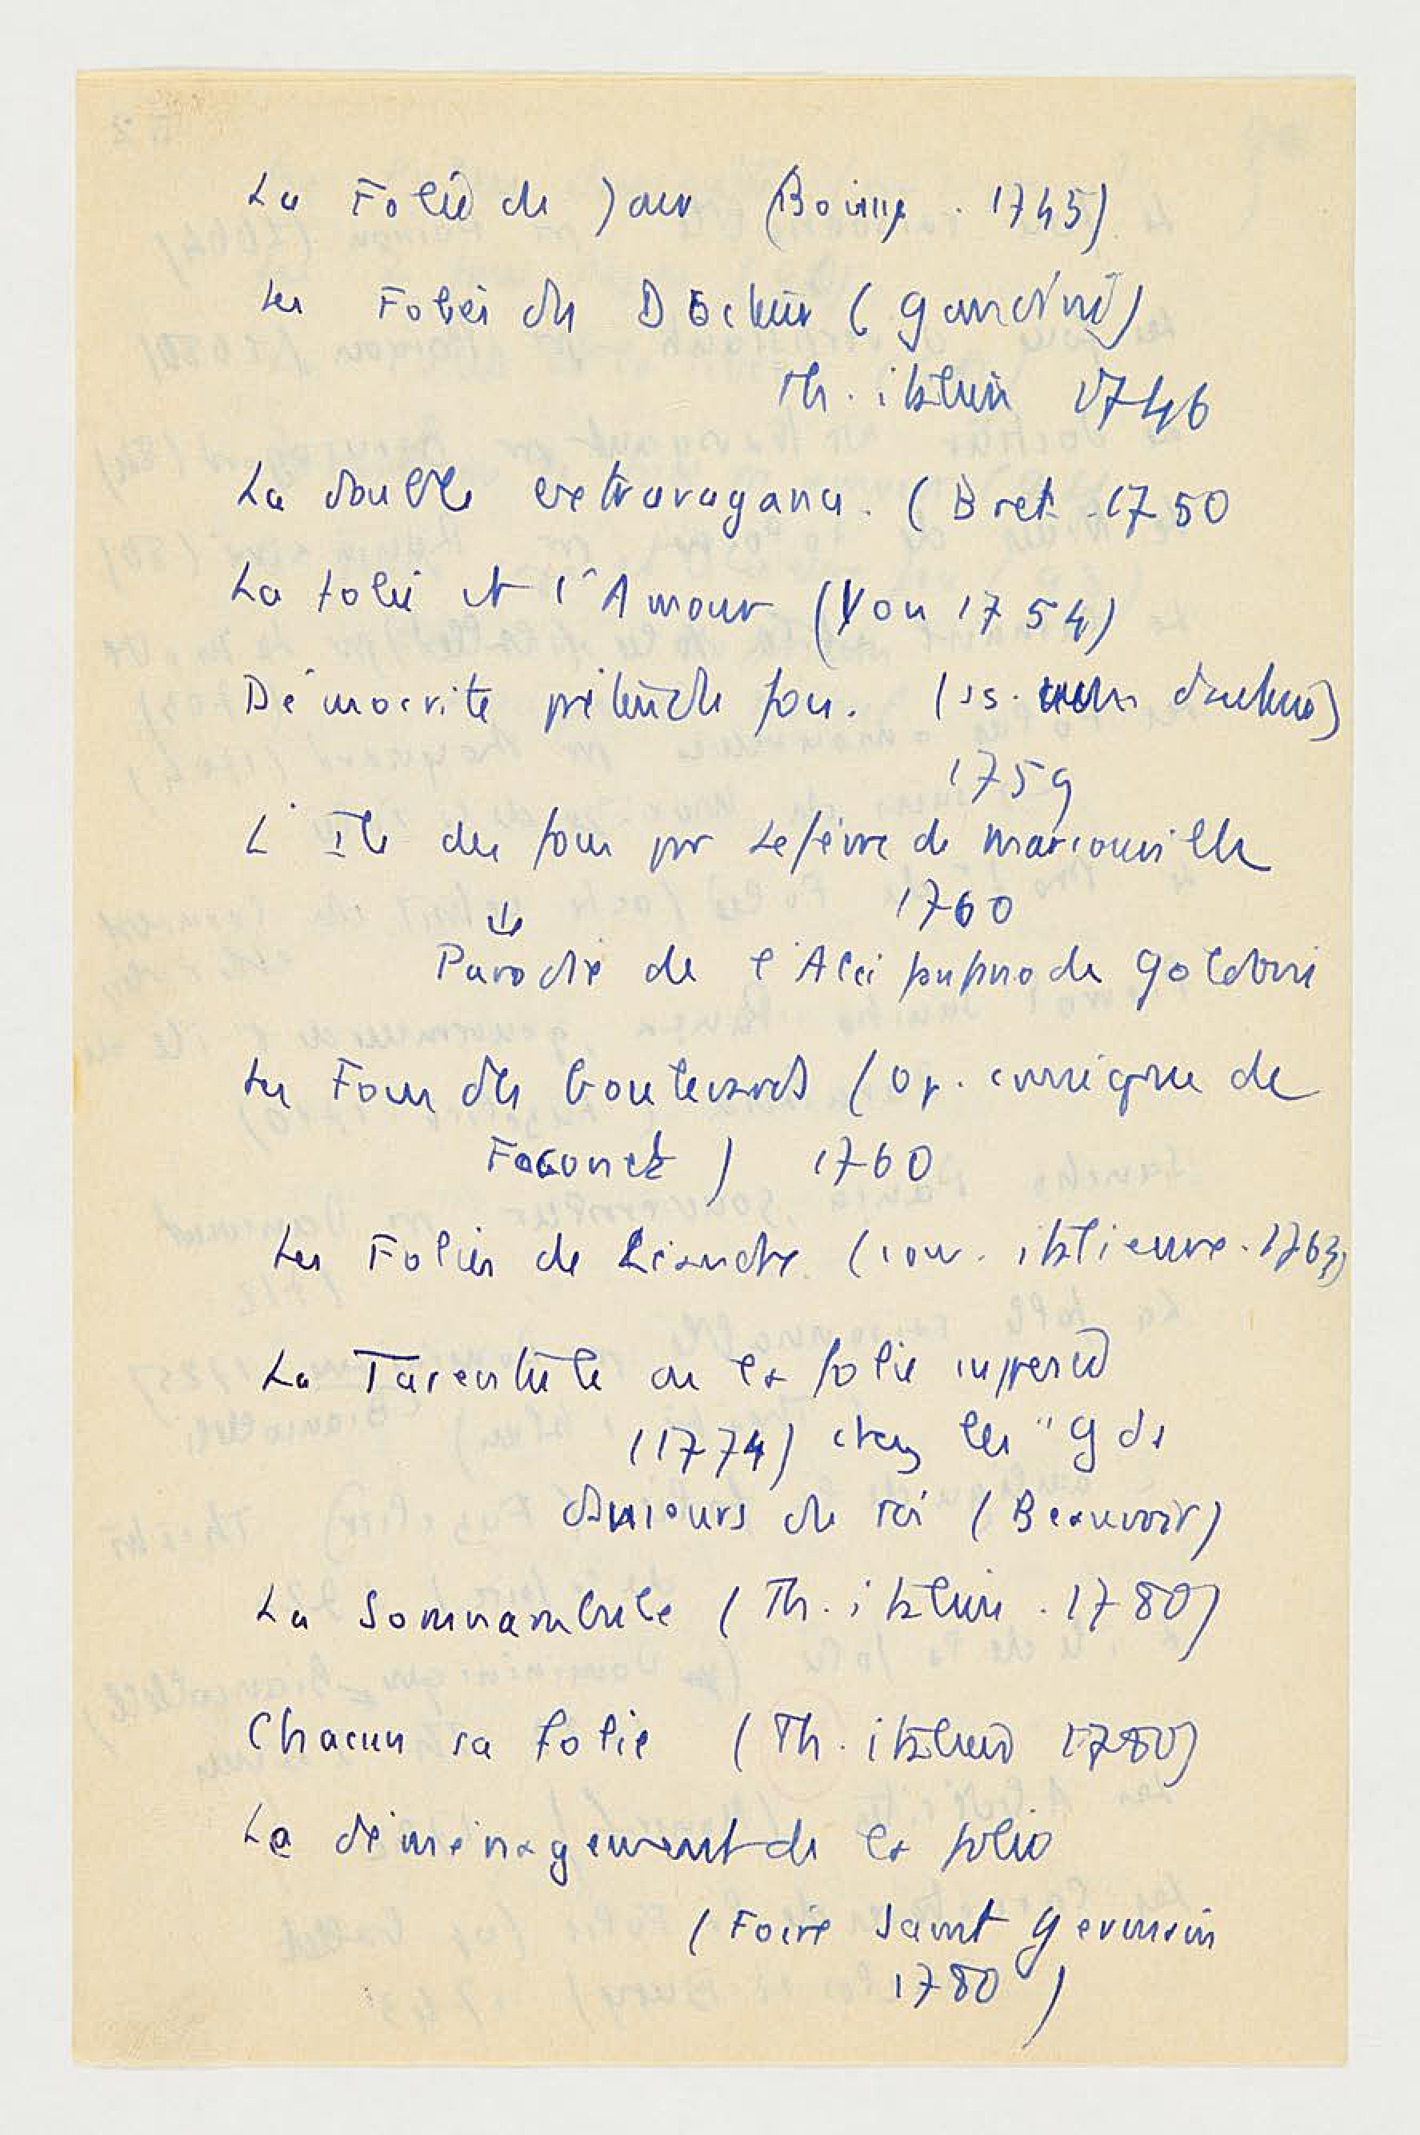 La Folie du Jour (Boissy. 1745)
Les Folies du Docteur (Gandini)
Th. italien 1746
La double extravagance. (Bret. 1750
La folie et l'Amour (Yon 1754)
Démocrite prétendu fou. (ss. nom d'auteur)
1759
L'Ile des fous par Lefèvre de Marcouville
1760
↓
Parodie de l'Arci de Goldoni
Les Fous des boulevards (op. comique de
Faconet) 1760
Les Folies de Léandre. (com. italienne. 1763)
La Tarentule ou la folie
(1774) chez les "Gds
danseurs du roi (Beauvoir)
La Somnambule (Th. italien. 1780)
Chacun sa folie (Th. italien 1780)
Le déménagement de la folie
(Foire Saint Germain
1780)